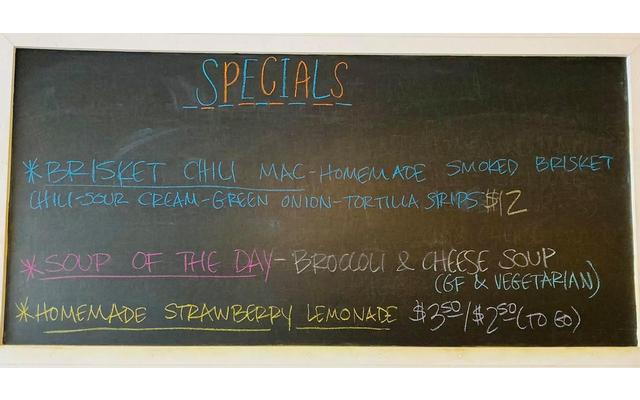 SPECIALS
*BRISKET CHILI MAC-HOMEMADE SMOKED BRISKET
CHILI-SOUR CREAM-GREEN ONION-TORTILLA STRIPS $12
*SOUP OF THE DAY-BROCCOLI & CHEESE SOUP
(GF & VEGETARIAN)
*HOMEMADE STRAWBERRY LEMONADE $350/$250(TO GO)